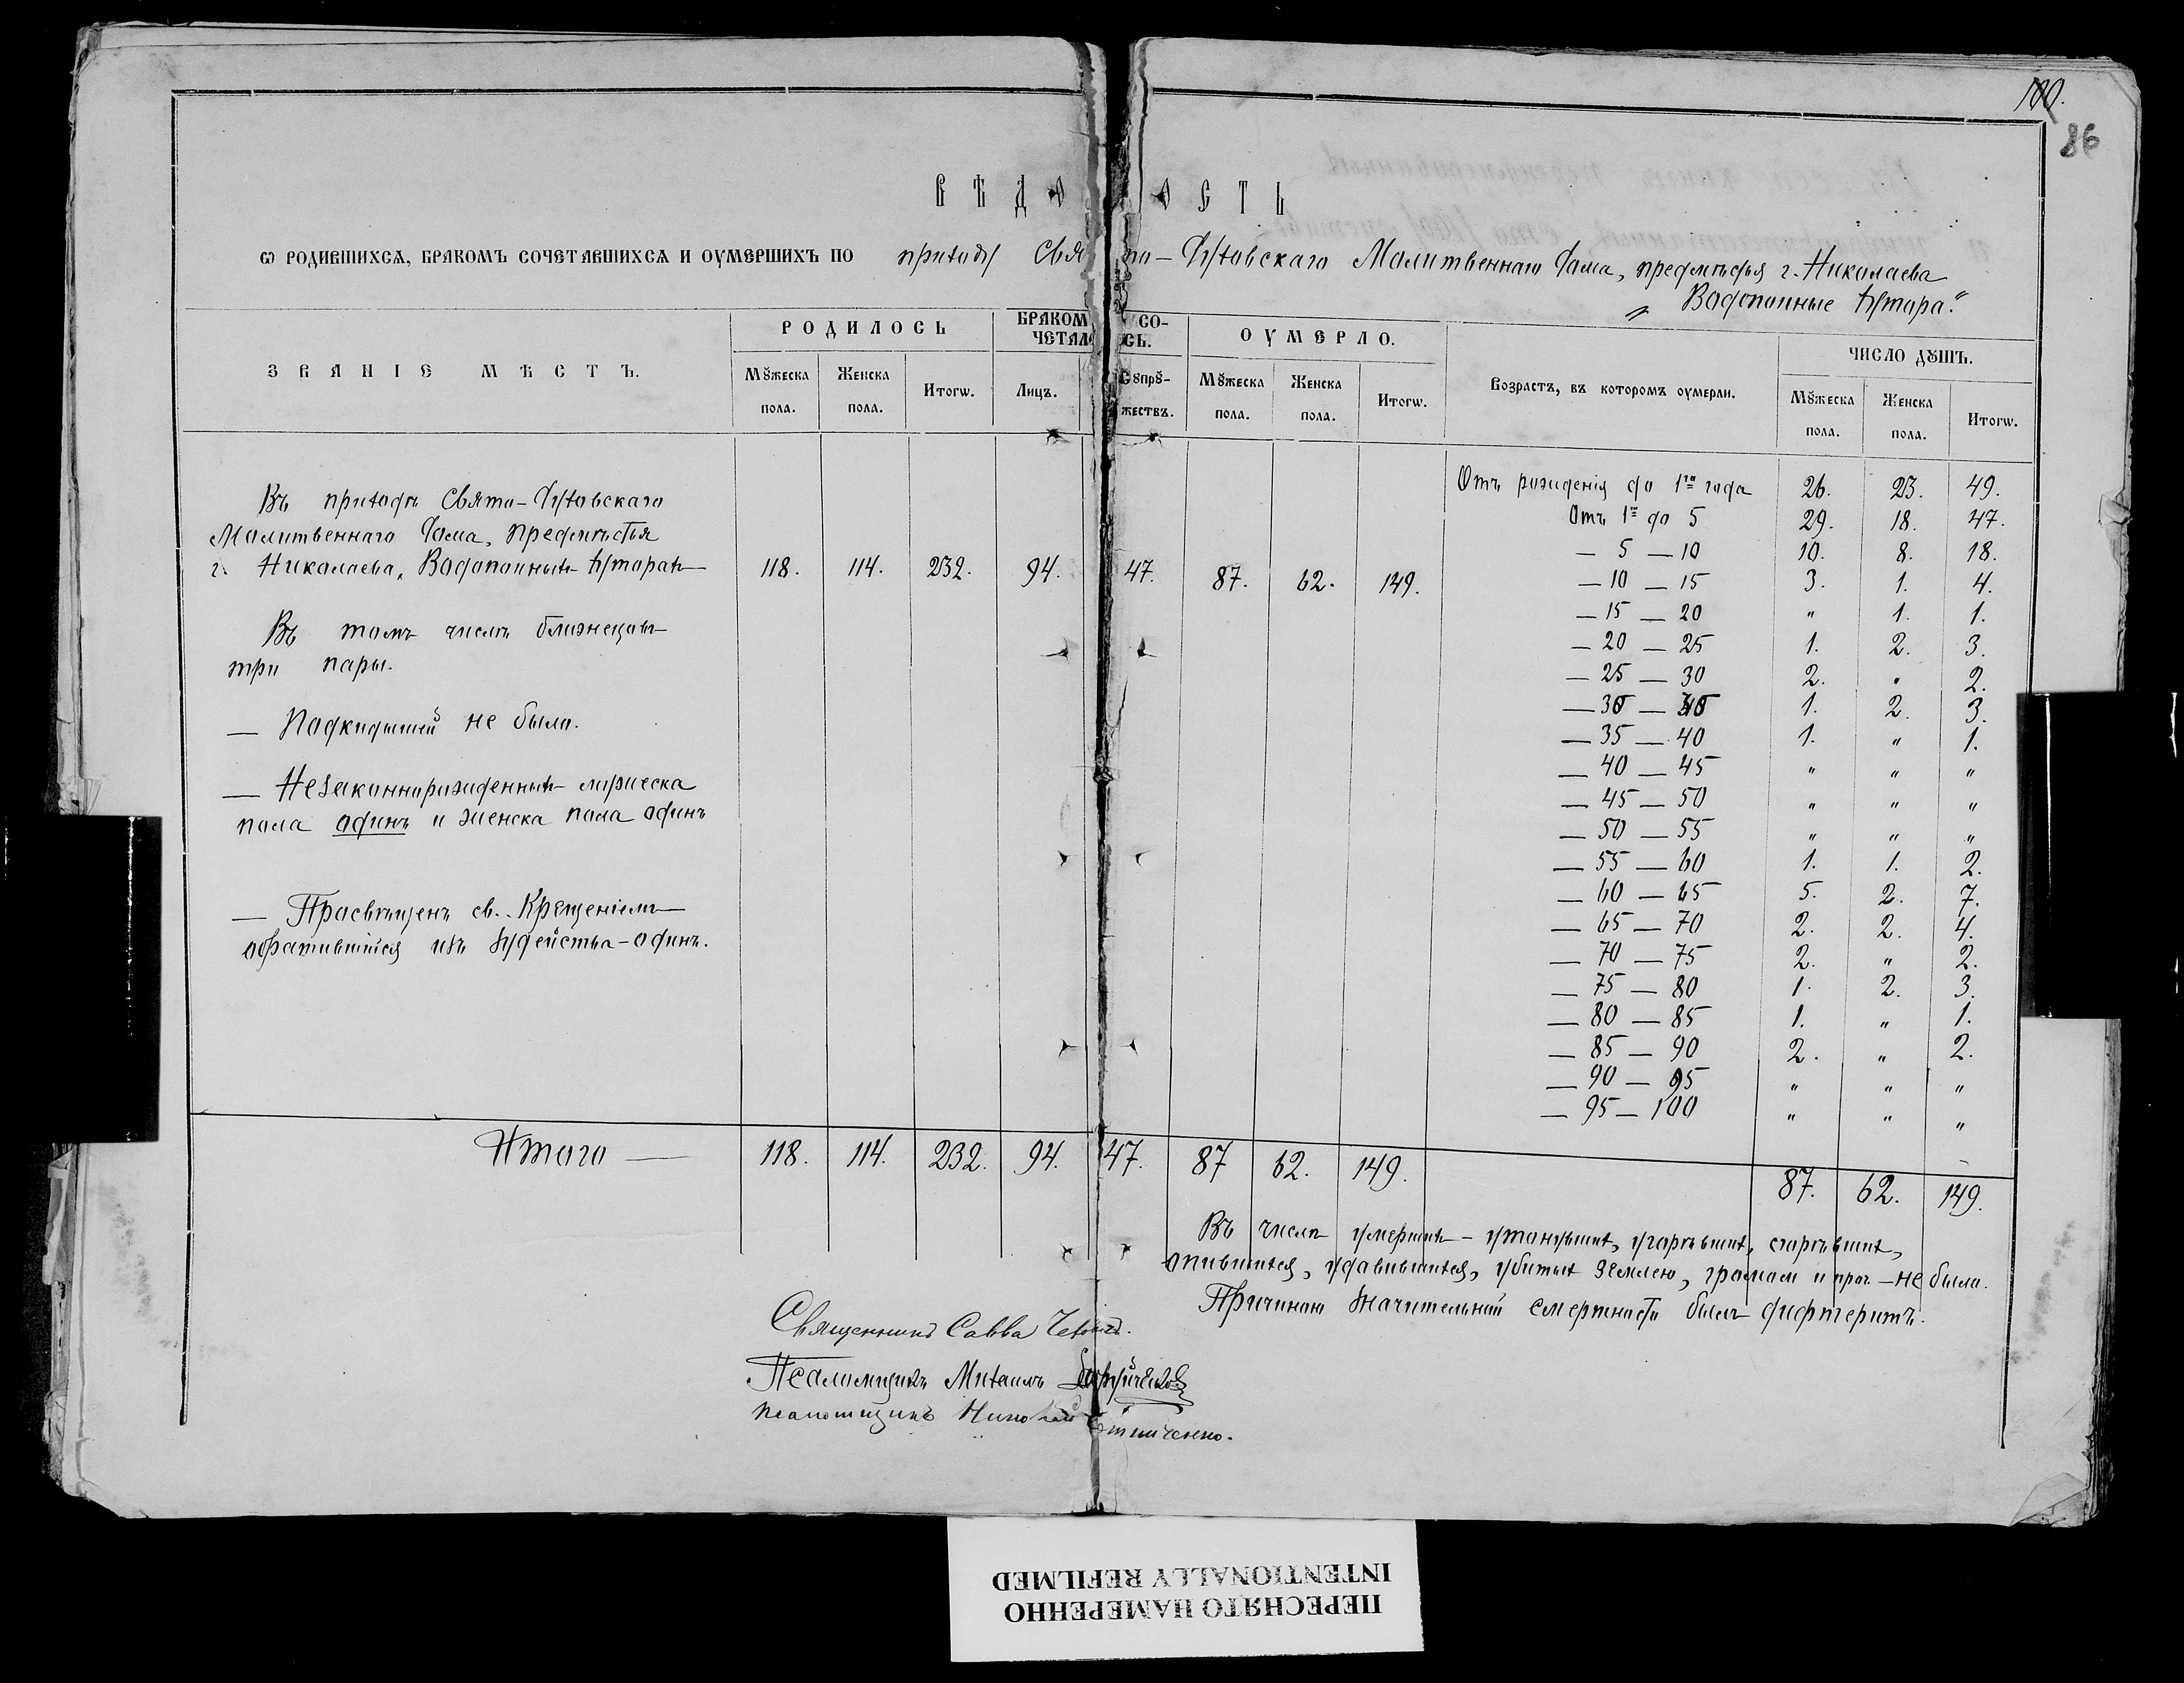 100.
86
ВѢДОМОСТЬ
Ѡ РОДИВШИХСѦ, БРАКОМЪ СОЧЕТАВШИХСѦ И ОУМЕРШИХЪ ПО приходу Свято-Духовскаго Молитвеннаго Дома, предмѣстья г. Николаева
„Водопойные хутора."
ЗВАНІЕ МѢСТЪ.
РОДИЛОСЬ
Мꙋжеска пола.
Женска пола.
Итогѡ.
БРАКОМЪ СОЧЕТАЛОСЬ.
Лицъ.
Сꙋпрꙋжествъ.
ОУМЕРЛО.
Мꙋжеска пола.
Женска пола.
Итогѡ.
Возрастъ, въ которомъ оумерли.
ЧИСЛО ДꙊШЪ.
Мꙋжеска пола.
Женска пола.
Итогѡ.
Въ приходѣ Свято-Духовскаго
Молитвеннаго Дома, предмѣстья
г. Николаева, Водопойныхъ хуторахъ 118. 114. 232. 94. 47. 87. 62. 149.
Въ томъ числѣ близнецовъ
три пары.
— Подкидышей не было.
— Незаконнорожденныхъ мужеска
пола одинъ и женска пола одинъ
— Просвѣщенъ св. Крещеніемъ
обратившійся изъ іудейства - одинъ.
Отъ рожденія до 1го года 26. 23. 49.
Отъ 1го до 5 29. 18. 47.
— 5 — 10 10. 8. 18.
— 10 — 15 3. 1. 4.
— 15 — 20 " 1. 1.
— 20 — 25 1. 2. 3.
— 25 — 30 2. " 2.
— 30 — 35 1. 2. 3.
— 35 — 40 1. " 1.
— 40 — 45 " " "
— 45 — 50 " " "
— 50 — 55 " " "
— 55 — 60 1. 1. 2.
— 60 — 65 5. 2. 7.
— 65 — 70 2. 2. 4.
— 70 — 75 2. " 2.
— 75 — 80 1. 2. 3.
— 80 — 85 1. " 1.
— 85 — 90 2. " 2.
— 90 — 95 " " "
— 95 — 100 " " "
Итого — 118. 114. 232. 94. 47. 87 62. 149. 87. 62. 149.
Въ числѣ умершихъ - утонувшихъ, угорѣвшихъ, сгорѣвшихъ,
опившихся, удавившихся, убитыхъ землею, громомъ и проч. - не было.
Причиною значительной смертности былъ дифтеритъ.
Священникъ Савва
Псаломщикъ Михаилъ
Псаломщикъ Николай
ПЕРЕСНЯТО НАМЕРЕННО
INTENTIONALLY REFILMED